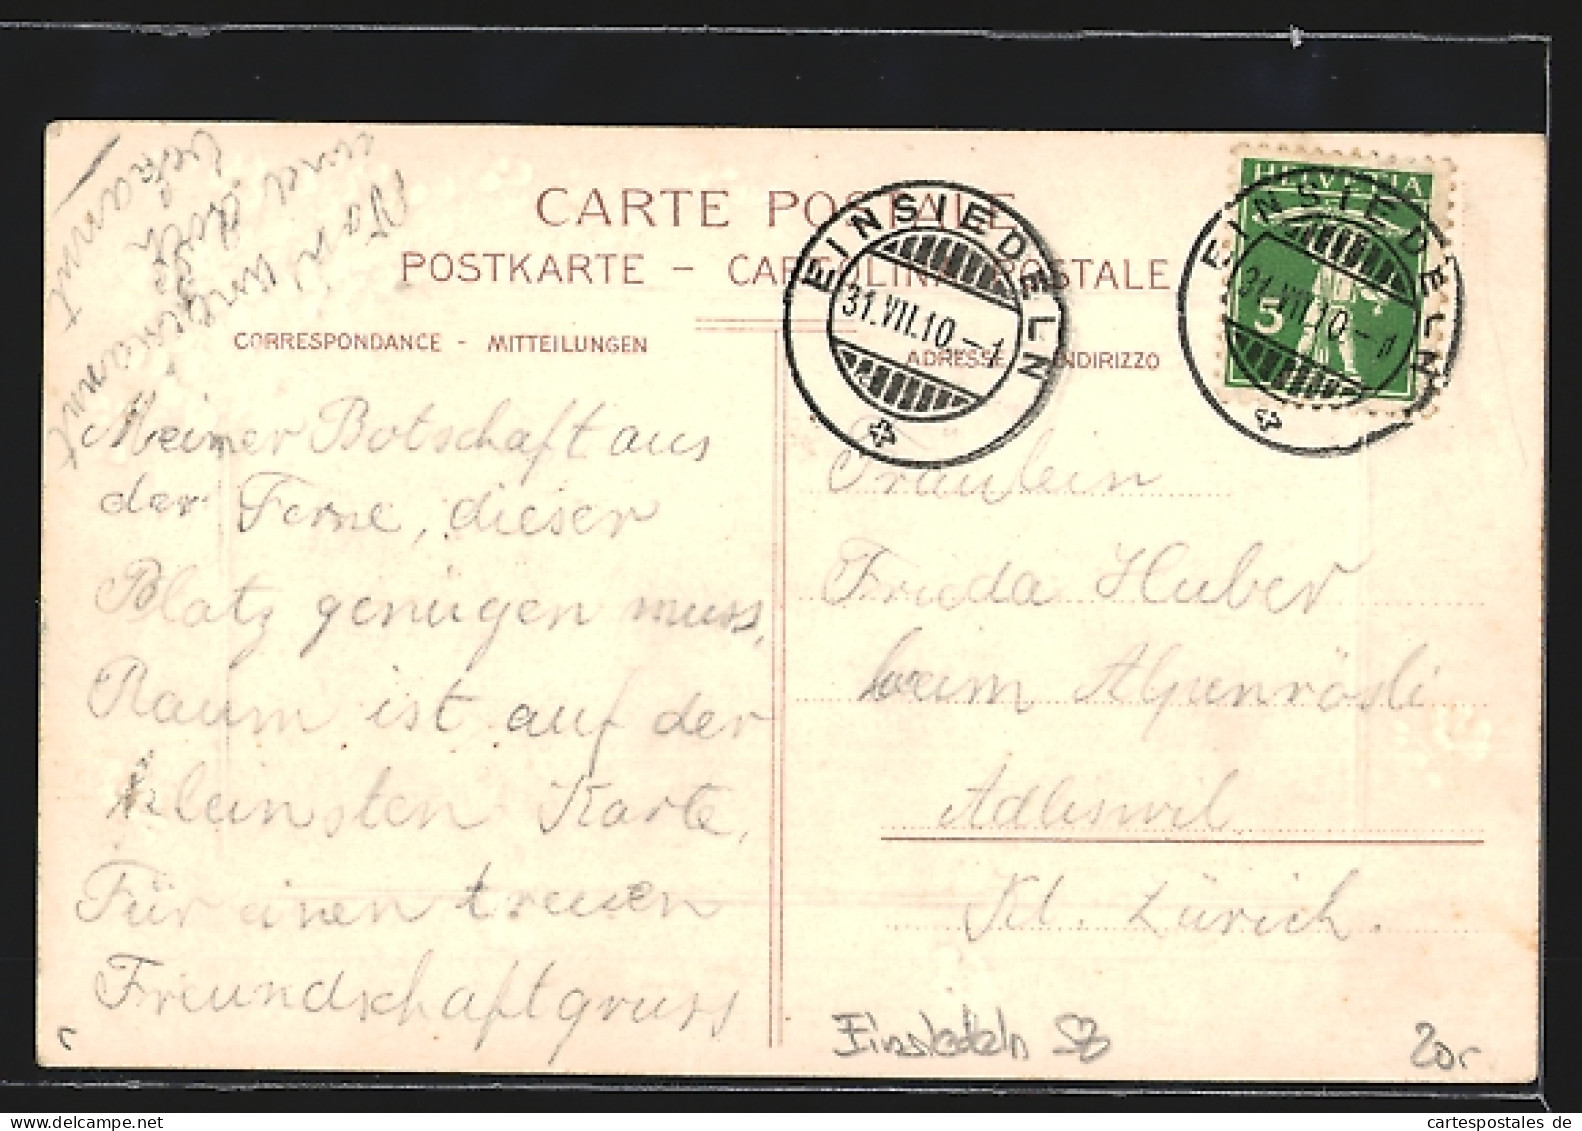 Von Unbekannt
und doch
bekannt
CARTE POSTALE
POSTKARTE – CARTOLINA POSTALE
CORRESPONDANCE - MITTEILUNGEN
ADRESSE INDIRIZZO
HELVETIA
5
EINSIEDELN
31.VII.10.–1
EINSIEDELN
31.VII.10.–1
Meiner Botschaft aus
der Ferne, dieser
Platz genügen muss,
Raum ist auf der
kleinsten Karte,
Für einen treuen
Freundschaftgruss
Fräulein
Frieda Huber
beim Alpenrösli
Adliswil
Kt. Zürich.
Einsiedeln SZ
20r
cartespostales de